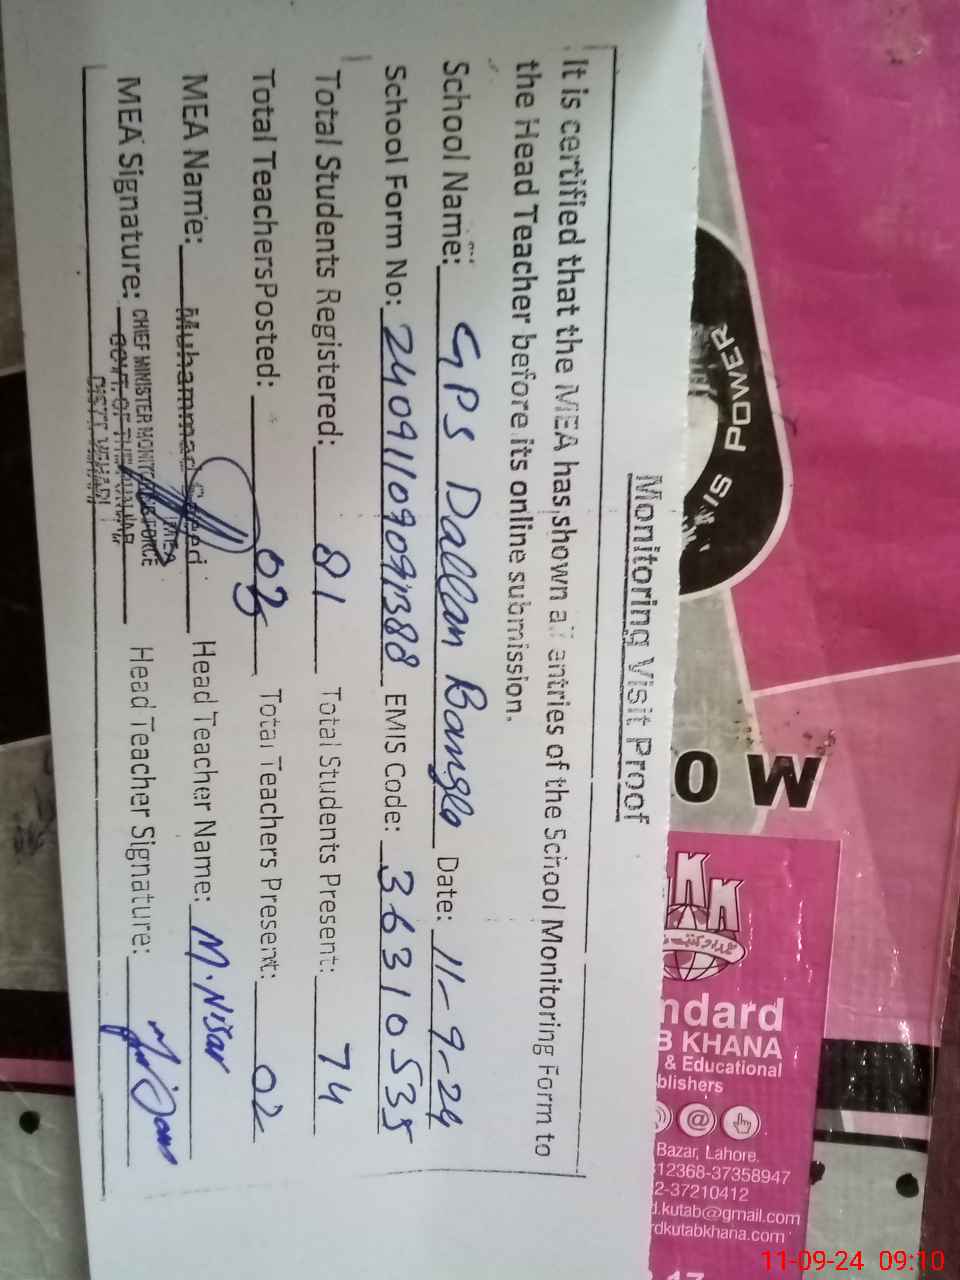 Monitoring Visit Proof
It is certified that the MEA has shown all entries of the School Monitoring Form to
the Head Teacher before its online submission.
School Name: GPS Dallan Bangla Date: 11-9-24
School Form No: EMIS Code: 36310535
Total Students Registered: 81 Total Students Present: 74
Total Teachers Posted: Total Teachers Present: 02
MEA Name: Muhammad Saeed Head Teacher Name: M. Nisar
MEA
MEA Signature: CHIEF MINISTER MONITORING FORCE Head Teacher Signature:
GOVT. OF THE PUNJAB
DISTT. VEHARI
POWER
SI
OW
KK
ndard
B KHANA
& Educational
blishers
@
Bazar, Lahore.
12368-37358947
2-37210412
d.kutab@gmail.com
rdkutabkhana.com
11-09-24 09:10